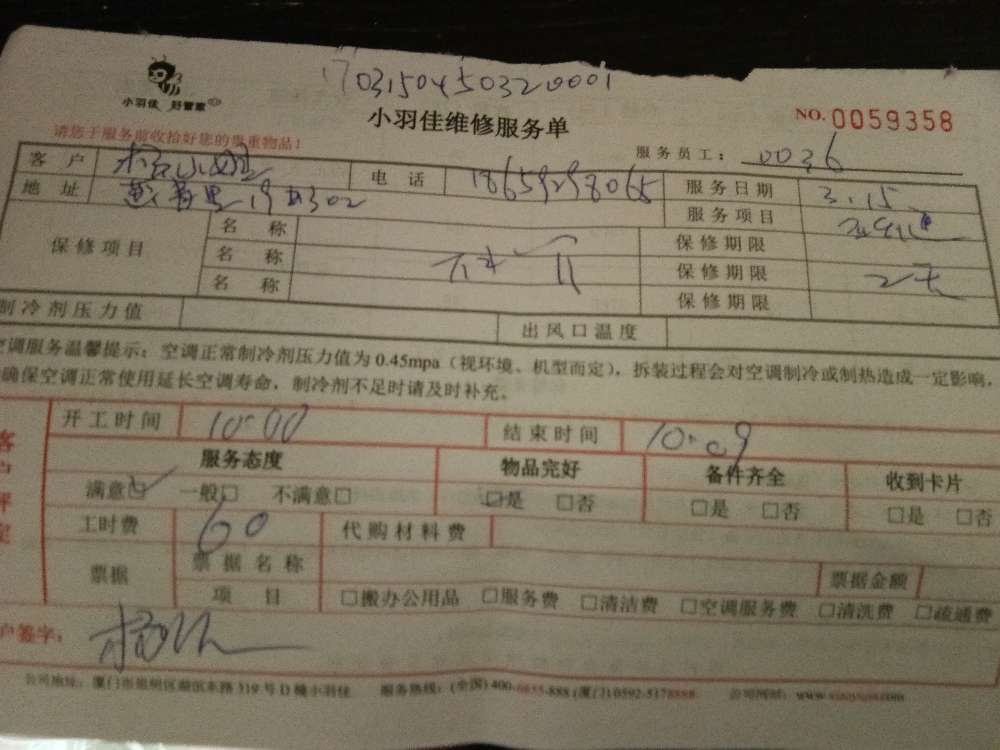 17031504503220001
小羽佳 好管家
小羽佳维修服务单
NO. 0059358
请您于服务前收拾好您的贵重物品!
服务员工: 0036
客户 电话 18659298065 服务日期 3.15
地址 19 302 服务项目
保修项目 名称 保修期限
名称 保修期限 2天
名称 保修期限
制冷剂压力值 出风口温度
空调服务温馨提示:空调正常制冷剂压力值为 0.45mpa(视环境、机型而定),拆装过程会对空调制冷或制热造成一定影响,
确保空调正常使用延长空调寿命,制冷剂不足时请及时补充。
开工时间 10:00 结束时间 10:09
服务态度 物品完好 备件齐全 收到卡片
满意☑ 一般□ 不满意□ □是 □否 □是 □否 □是 □否
工时费 60 代购材料费
票据 票据名称 票据金额
项目 □搬办公用品 □服务费 □清洁费 □空调服务费 □清洗费 □疏通费
户签字:
公司地址:厦门市思明区湖滨东路319号D幢小羽佳 服务热线:(全国)400-6655-888(厦门)0592-5178888 公司网址: